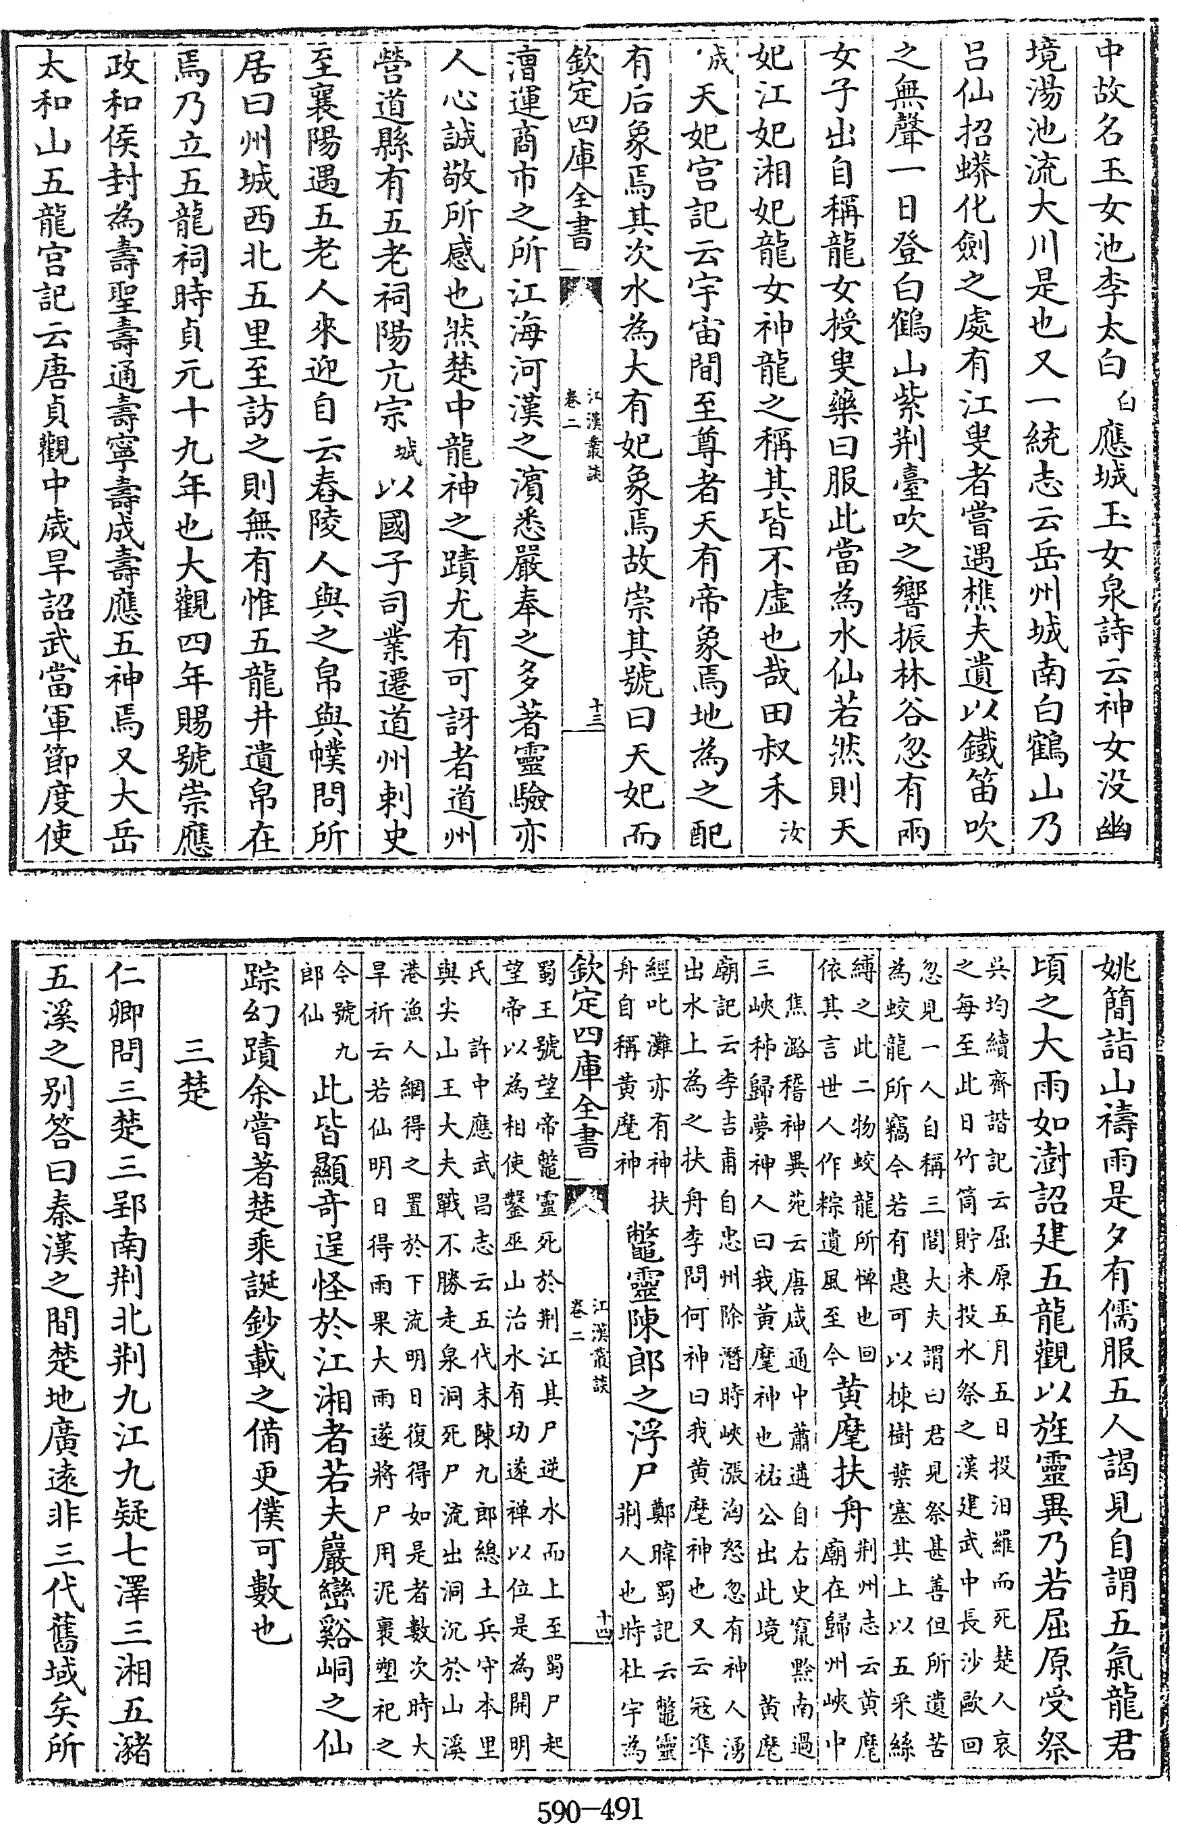 中故名玉女池李太白白應城玉女泉詩云神女没幽
境湯池流大川是也又一統志云岳州城南白鶴山乃
吕仙招蟒化劍之處有江叟者嘗遇樵夫遺以鐵笛吹
之無聲一日登白鶴山紫荆臺吹之響振林谷忽有兩
女子出自稱龍女授叟藥曰服此當為水仙若然則天
妃江妃湘妃龍女神龍之稱其皆不虚也哉田叔禾汝
成天妃宫記云宇宙間至尊者天有帝象焉地為之配
有后象焉其次水為大有妃象焉故崇其號曰天妃而
欽定四庫全書
江漢叢談
卷二
十三
漕運商市之所江海河漢之濱悉嚴奉之多著靈驗亦
人心誠敬所感也然楚中龍神之蹟尤有可訝者道州
營道縣有五老祠陽亢宗城以國子司業遷道州刺史
至襄陽遇五老人來迎自云舂陵人與之帛與幞問所
居曰州城西北五里至訪之則無有惟五龍井遺帛在
焉乃立五龍祠時貞元十九年也大觀四年賜號崇應
政和侯封為壽聖壽通壽寧壽成壽應五神焉又大岳
太和山五龍宫記云唐貞觀中歲旱詔武當軍節度使
姚簡詣山禱雨是夕有儒服五人謁見自謂五氣龍君
頃之大雨如澍詔建五龍觀以旌靈異乃若屈原受祭
吳均續齊諧記云屈原五月五日投汨羅而死楚人哀
之每至此日竹筒貯米投水祭之漢建武中長沙歐回
忽見一人自稱三閭大夫謂曰君見祭甚善但所遺苦
為蛟龍所竊今若有惠可以楝樹葉塞其上以五采絲
縛之此二物蛟龍所憚也回
依其言世人作粽遺風至今
黄麾扶舟
荆州志云黄麾
廟在歸州峽中
焦潞稽神異苑云唐咸通中蕭遘自右史竄黔南過
三峽秭歸夢神人曰我黄麾神也祐公出此境黄麾
廟記云李吉甫自忠州除潛時峽漲洶怒忽有神人湧
出水上為之扶舟李問何神曰我黄麾神也又云冦凖
經叱灘亦有神扶
舟自稱黄麾神
鼈靈陳郎之浮尸
鄭暐蜀記云鼈靈
荆人也時杜宇為
欽定四庫全書
江漢叢談
卷二
十四
蜀王號望帝鼈靈死於荆江其尸逆水而上至蜀尸起
望帝以為相使鑿巫山治水有功遂禅以位是為開明
氏許中應武昌志云五代末陳九郎總土兵守本里
與尖山王大夫戰不勝走泉洞死尸流出洞沉於山溪
港漁人網得之置於下流明日復得如是者數次時大
旱祈云若仙明日得雨果大雨遂將尸用泥裹塑祀之
今號九
郎仙
此皆顯奇逞怪於江湘者若夫巖巒谿峒之仙
踪幻蹟余嘗著楚乘誕鈔載之備更僕可數也
三楚
仁卿問三楚三郢南荆北荆九江九疑七澤三湘五瀦
五溪之别答曰秦漢之間楚地廣遠非三代舊域矣所
590—491